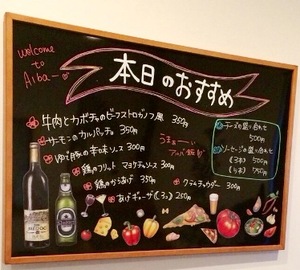 welcome
to
Aiba—
本日のおすすめ
牛肉とカボチャのビーフストロガノフ風 350円
サーモンのカルパッチョ 350円
ゆで豚の辛味ソース 300円
鶏のフリット マヨケチャソース 300円
鶏のからあげ 350円
クラムチャウダー 300円
あげギョーザ(5コ) 250円
うまぁーい
チーズの盛り合わせ
500円
ソーセージの盛り合わせ
(3本) 500円
(5本) 750円
MEDOC